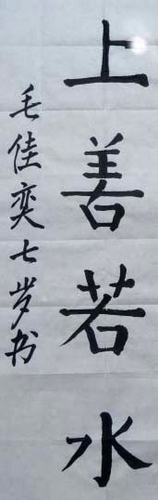 上善若水
毛佳奕七岁书